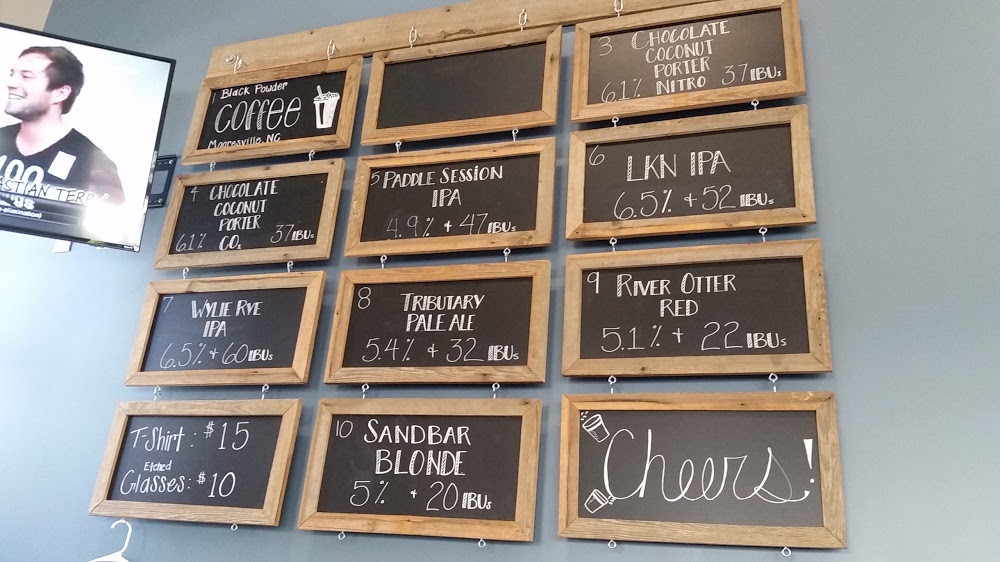 1 Black Powder
Coffee
Mooresville, NC
3 Chocolate
Coconut
Porter
6.1% Nitro 37 IBUs
4 Chocolate
Coconut
Porter
6.1% CO2 37 IBUs
5 Paddle Session
IPA
4.9% + 47 IBUs
6 LKN IPA
6.5% + 52 IBUs
7 Wylie Rye
IPA
6.5% + 60 IBUs
8 Tributary
Pale Ale
5.4% + 32 IBUs
9 River Otter
Red
5.1% + 22 IBUs
T-Shirt: $15
Etched
Glasses: $10
10 Sandbar
Blonde
5% + 20 IBUs
Cheers!
100
STIAN TERRY